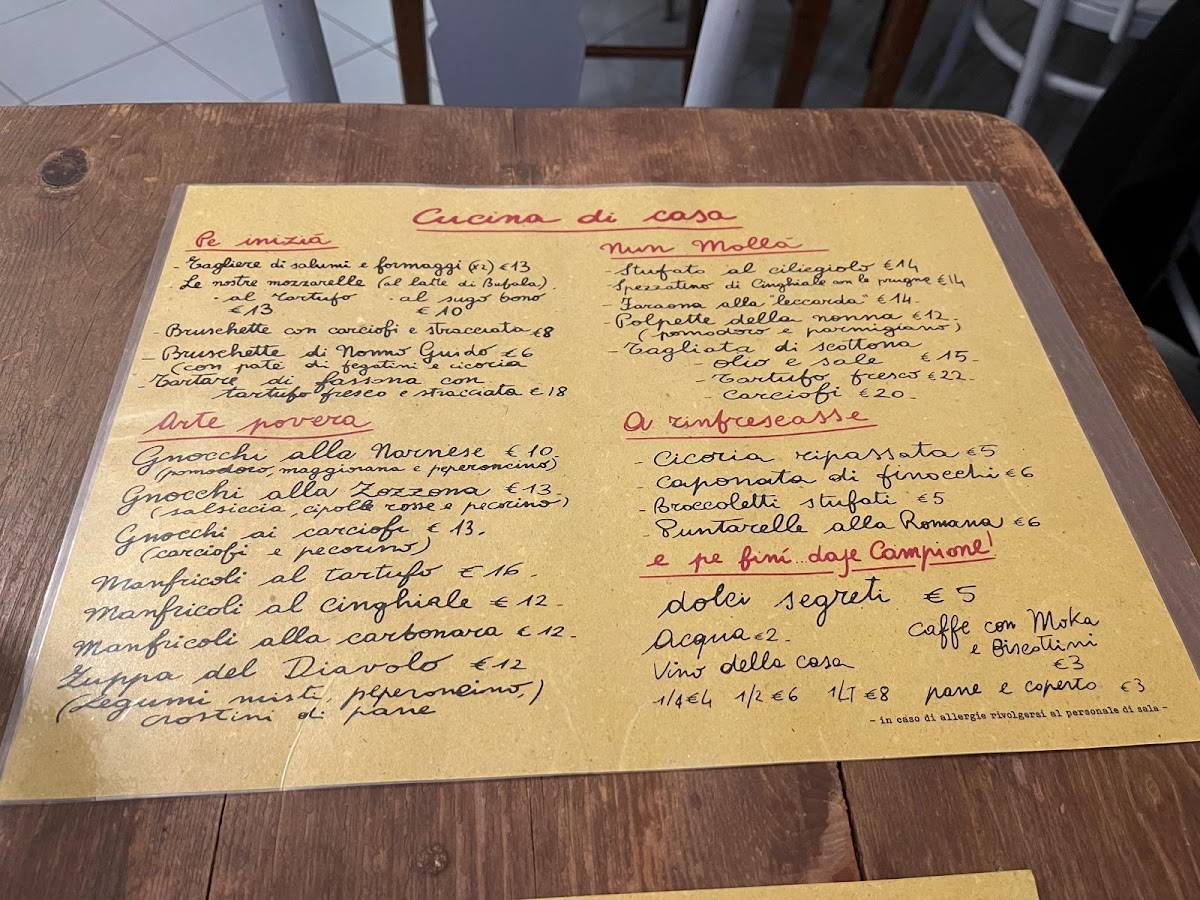 Cucina di casa
Pe inizià
- Tagliere di salumi e formaggi (x2) €13
- Le nostre mozzarelle (al latte di Bufala)
- al tartufo - al sugo bono
€13 €10
- Bruschette con carciofi e stracciata €8
- Bruschette di Nonno Guido €6
(con patè di fegatini e cicoria
- Tartare di fassona con
tartufo fresco e stracciata €18
Arte povera
Gnocchi alla Narnese €10
(pomodoro, maggiorana e peperoncino)
Gnocchi alla Zozzona €13
(salsiccia, cipolle rosse e pecorino)
Gnocchi ai carciofi €13.
(carciofi e pecorino)
Manfricoli al tartufo €16.
Manfricoli al cinghiale €12-
Manfricoli alla carbonara €12-
Zuppa del Diavolo €12
(Legumi misti, peperoncino,)
crostini di pane
Nun Mollà
- Stufato al ciliegiolo €14
- Spezzatino di Cinghiale con le prugne €14
- Faraona alla "leccarda" €14-
- Polpette della nonna €12-
(pomodoro e parmigiano)
- Tagliata di scottona
- olio e sale €15-
- Tartufo fresco €22-
- carciofi €20-
A rinfrescasse
- Cicoria ripassata €5
- Caponata di finocchi €6
- Broccoletti stufati €5
- Puntarelle alla Romana €6
e pe finì...daje Campione!
dolci segreti €5
Acqua €2-
Vino della casa
1/4 €4 1/2 €6 1LT €8
caffe con Moka
e Biscottini
€3
pane e coperto €3
- in caso di allergie rivolgersi al personale di sala -